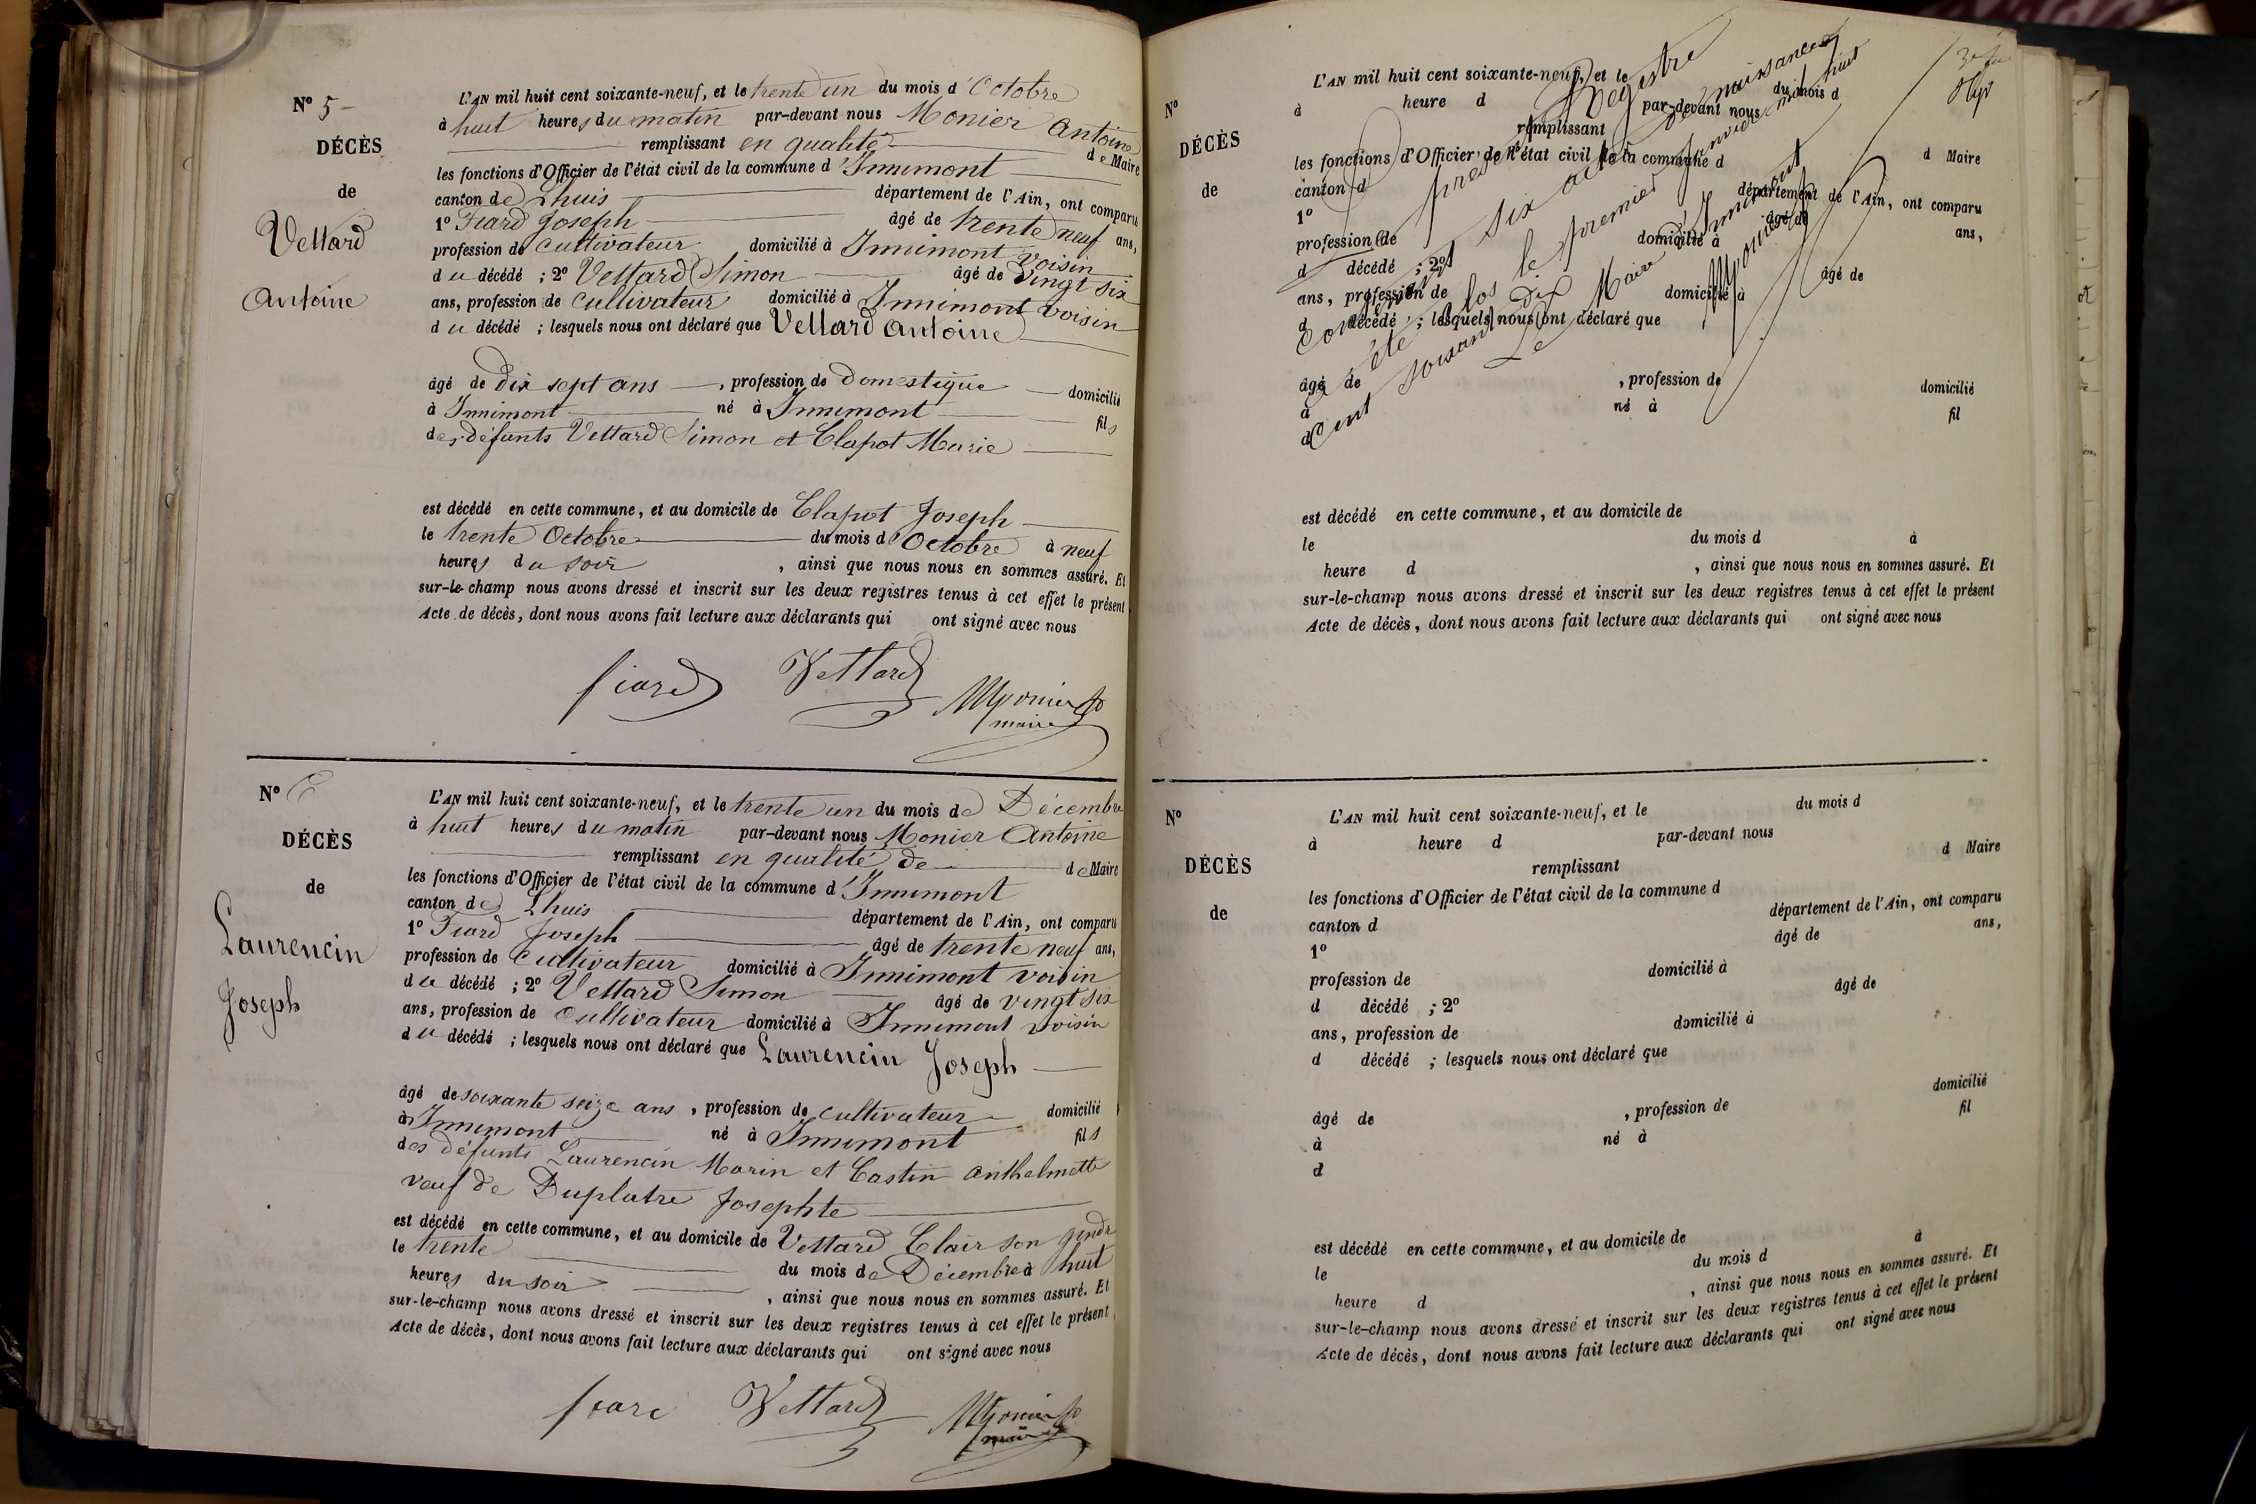 N° 5
DÉCÈS
de
Vettard
Antoine
L'AN mil huit cent soixante-neuf, et le trente un du mois d'Octobre
à huit heures du matin par-devant nous Monier Antoine
remplissant en qualité de Maire
les fonctions d'Officier de l'état civil de la commune d'Innimont
canton de Lhuis département de l'Ain, ont comparu
1° Fiard Joseph âgé de trente neuf ans,
profession de cultivateur domicilié à Innimont voisin
du décédé ; 2° Vettard Simon âgé de vingt six
ans, profession de cultivateur domicilié à Innimont voisin
du décédé ; lesquels nous ont déclaré que Vettard Antoine
âgé de dix sept ans, profession de domestique domicilié
à Innimont né à Innimont fils
des défunts Vettard Simon et Clapot Marie
est décédé en cette commune, et au domicile de Clapot Joseph
le trente Octobre du mois d'Octobre à neuf
heures du soir, ainsi que nous nous en sommes assuré. Et
sur-le-champ nous avons dressé et inscrit sur les deux registres tenus à cet effet le présent
Acte de décès, dont nous avons fait lecture aux déclarants qui ont signé avec nous
fiard Vettard Monier
maire
N° 6
DÉCÈS
de
Laurencin
Joseph
L'AN mil huit cent soixante-neuf, et le trente un du mois de Décembre
à huit heures du matin par-devant nous Monier Antoine
remplissant en qualité de de Maire
les fonctions d'Officier de l'état civil de la commune d'Innimont
canton de Lhuis département de l'Ain, ont comparu
1° Fiard Joseph âgé de trente neuf ans,
profession de cultivateur domicilié à Innimont voisin
du décédé ; 2° Vettard Simon âgé de vingt six
ans, profession de cultivateur domicilié à Innimont voisin
du décédé ; lesquels nous ont déclaré que Laurencin Joseph
âgé de soixante seize ans, profession de cultivateur domicilié
à Innimont né à Innimont fils
des défunts Laurencin Marin et Castin Anthelmette
veuf de Duplatre Josephte
est décédé en cette commune, et au domicile de Vettard Clair son gendre
le trente du mois de Décembre à huit
heures du soir, ainsi que nous nous en sommes assuré. Et
sur-le-champ nous avons dressé et inscrit sur les deux registres tenus à cet effet le présent
Acte de décès, dont nous avons fait lecture aux déclarants qui ont signé avec nous
fiard Vettard Monier
maire
N°
DÉCÈS
de
L'AN mil huit cent soixante-neuf, et le du mois d
à heure d par-devant nous
remplissant d Maire
les fonctions d'Officier de l'état civil de la commune d
canton d département de l'Ain, ont comparu
1° âgé de ans,
profession de domicilié à
d décédé ; 2° âgé de
ans, profession de domicilié à
d décédé ; lesquels nous ont déclaré que
âgé de , profession de domicilié
à né à fil
d
est décédé en cette commune, et au domicile de
le du mois d à
heure d , ainsi que nous nous en sommes assuré. Et
sur-le-champ nous avons dressé et inscrit sur les deux registres tenus à cet effet le présent
Acte de décès, dont nous avons fait lecture aux déclarants qui ont signé avec nous
présent Registre
contenant six actes de naissances
a été clos le premier Janvier mil huit
cent soixante dix
Le Maire d'Innimont
Monier
N°
DÉCÈS
de
L'AN mil huit cent soixante-neuf, et le du mois d
à heure d par-devant nous
remplissant d Maire
les fonctions d'Officier de l'état civil de la commune d
canton d département de l'Ain, ont comparu
1° âgé de ans,
profession de domicilié à
d décédé ; 2° âgé de
ans, profession de domicilié à
d décédé ; lesquels nous ont déclaré que
âgé de , profession de domicilié
à né à fil
d
est décédé en cette commune, et au domicile de
le du mois d à
heure d , ainsi que nous nous en sommes assuré. Et
sur-le-champ nous avons dressé et inscrit sur les deux registres tenus à cet effet le présent
Acte de décès, dont nous avons fait lecture aux déclarants qui ont signé avec nous